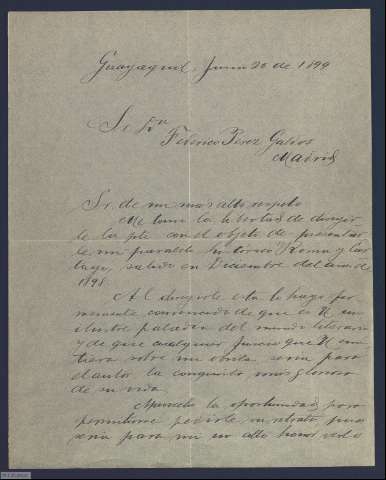 Guayaquil, Junio 20 de 1899
Sr. Dn
Federico Perez Galdos
Madrid
Sr. de mi mas alto respeto
Me tomo la libertad de dirigir
le la pte con el objeto de presentar
le mi paralelo historico Roma y Car
tago, salido en Diciembre del año de
1898.
Al dirigirle esta lo hago fir
memente convencido de que es U un
ilustre paladin del mundo literario
y de que cualquier juicio que U emi
tiera sobre mi obrita seria para
el autor la conquista mas gloriosa
de su vida
Aprovecho la oportunidad para
permitirme pedirle su retrato, pues
seria para mi un alto honor verlo